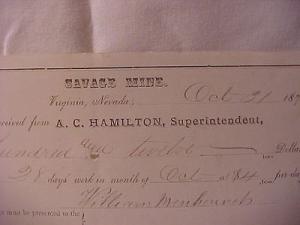 SAVAGE MINE.
Virginia, Nevada, Oct 31 187
ceived from A. C. HAMILTON, Superintendent,
undred and twelve Dollar
28 days' work in month of Oct at $4 per da
William
must be presented to the